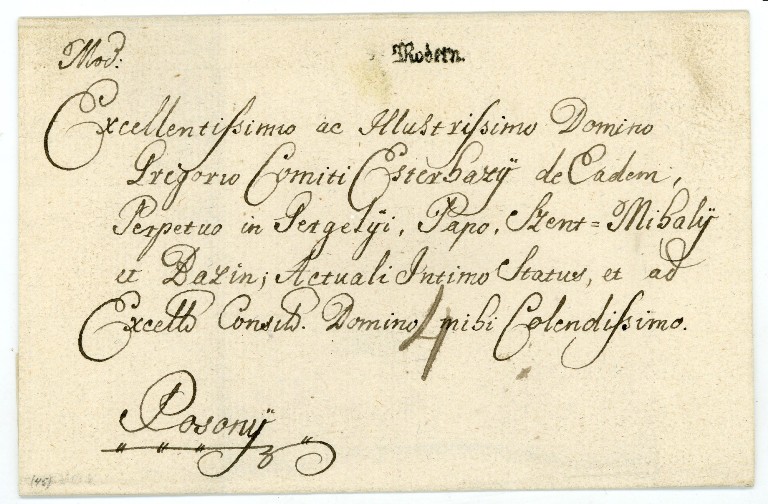 Mod:
Modern.
Excellentissimo ac Illustrissimo Domino
Gregorio Comiti Esterhazÿ de Eadem,
Perpetuo in Gergelÿi, Papo, Szent=Mihalÿ
et Bazin; Actuali Intimo Status, et ad
Excells Consils. Domino mihi Colendissimo.
4
Posonÿ